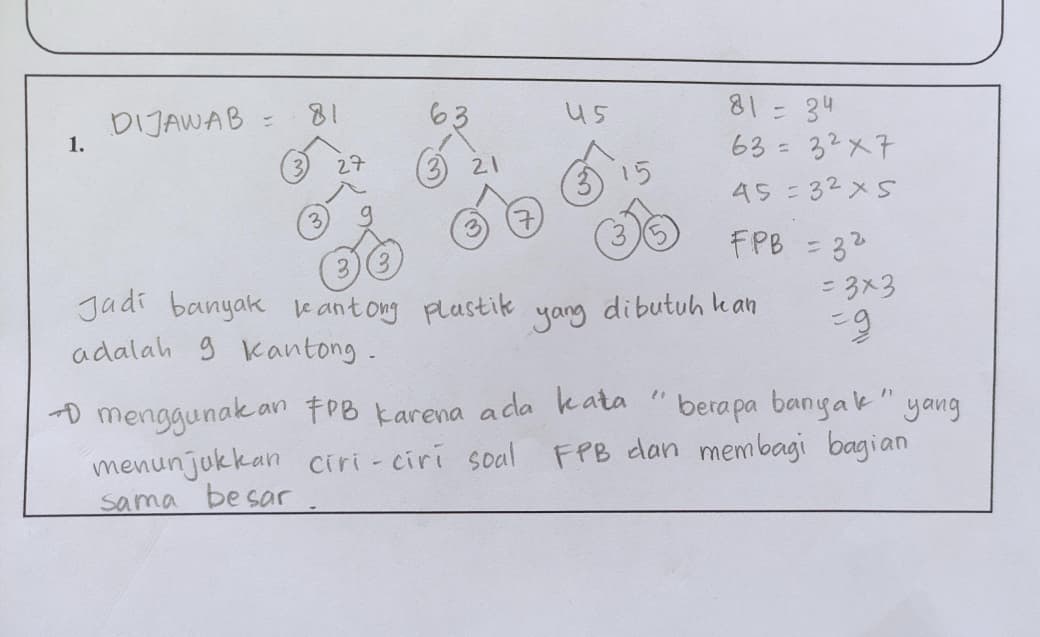 1. DIJAWAB = 81 63 45
3 27 3 21 3 15
3 9 3 7 3 5
3 3
81 = 3⁴
63 = 3² × 7
45 = 3² × 5
FPB = 3²
= 3×3
= 9
Jadi banyak kantong plastik yang dibutuhkan
adalah 9 kantong.
→ menggunakan FPB karena ada kata "berapa banyak" yang
menunjukkan ciri-ciri soal FPB dan membagi bagian
sama besar.